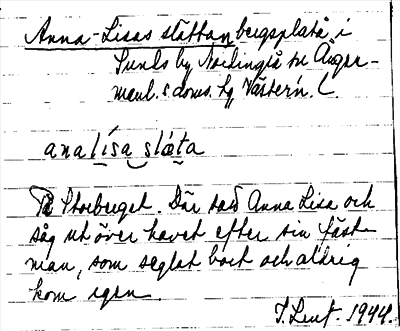 Anna-Lisas slåttan bergsplatå i
Sunds by Nordingrå sn Ånger-
manl. s. doms. hg Västern. L.
analísa slåta
På Storberget. Där satt Anna Lisa och
såg ut över havet efter sin fäst-
man, som seglat bort och aldrig
kom igen.
1944.